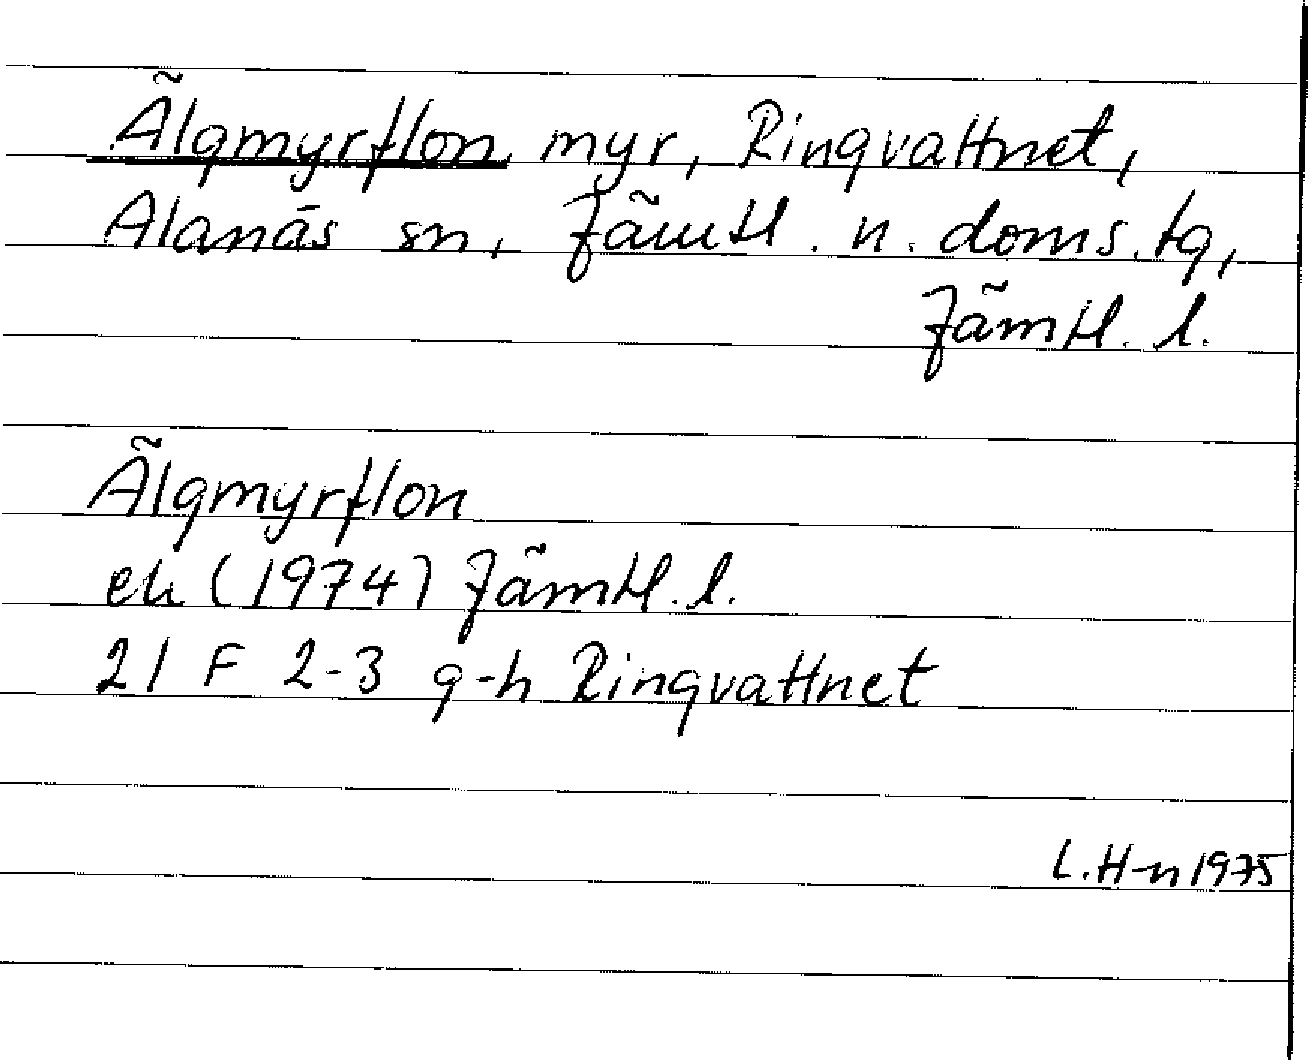 Älgmyrflon myr, Ringvattnet,
Alanäs sn, Jämtl. n. doms. tg,
Jämtl. l.
Älgmyrflon
ek (1974) Jämtl. l.
21 F 2-3 g-h Ringvattnet
L. H-n 1975